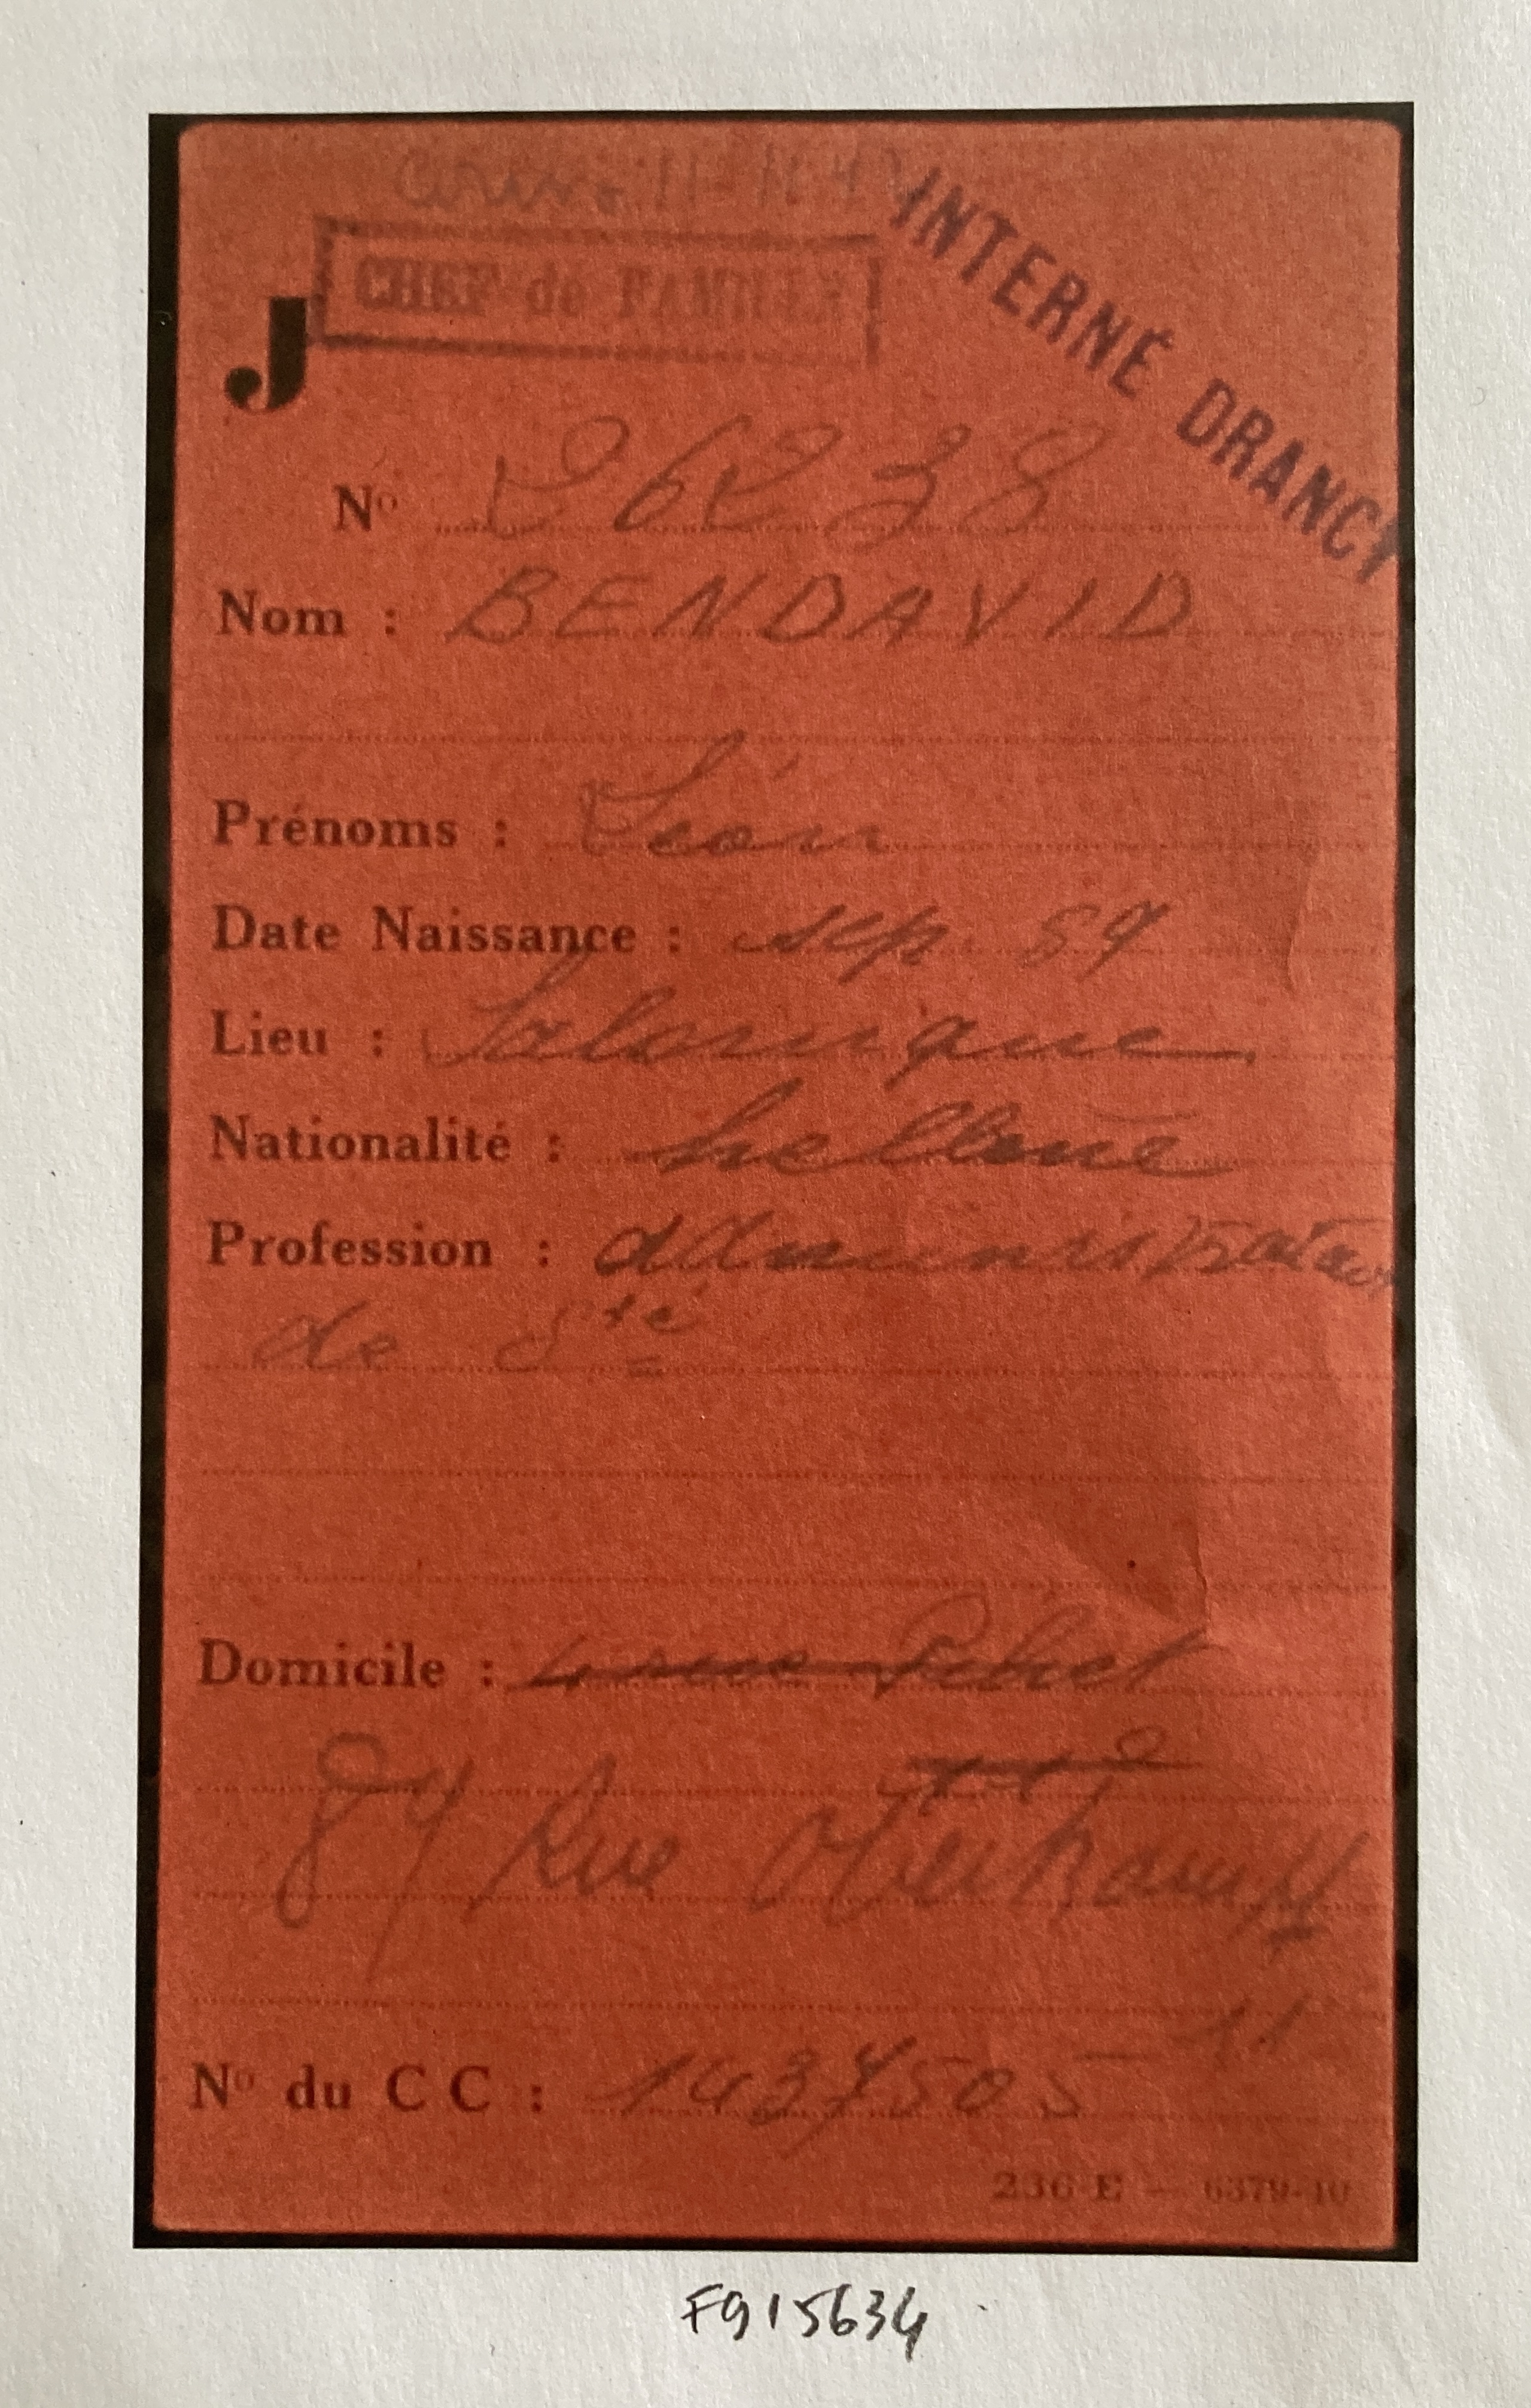 11-11-4
INTERNÉ DRANCY
CHEF de FAMILLE
J
Nº 26238
Nom : BENDAVID
Prénoms : Léon
Date Naissance : sep. 59
Lieu : Salonique
Nationalité : hellène
Profession : administrateur
de Sté
Domicile : 4 rue
87 Rue Oberkampf
11
Nº du CC : 1437505
236 E — 6379-40
F915634